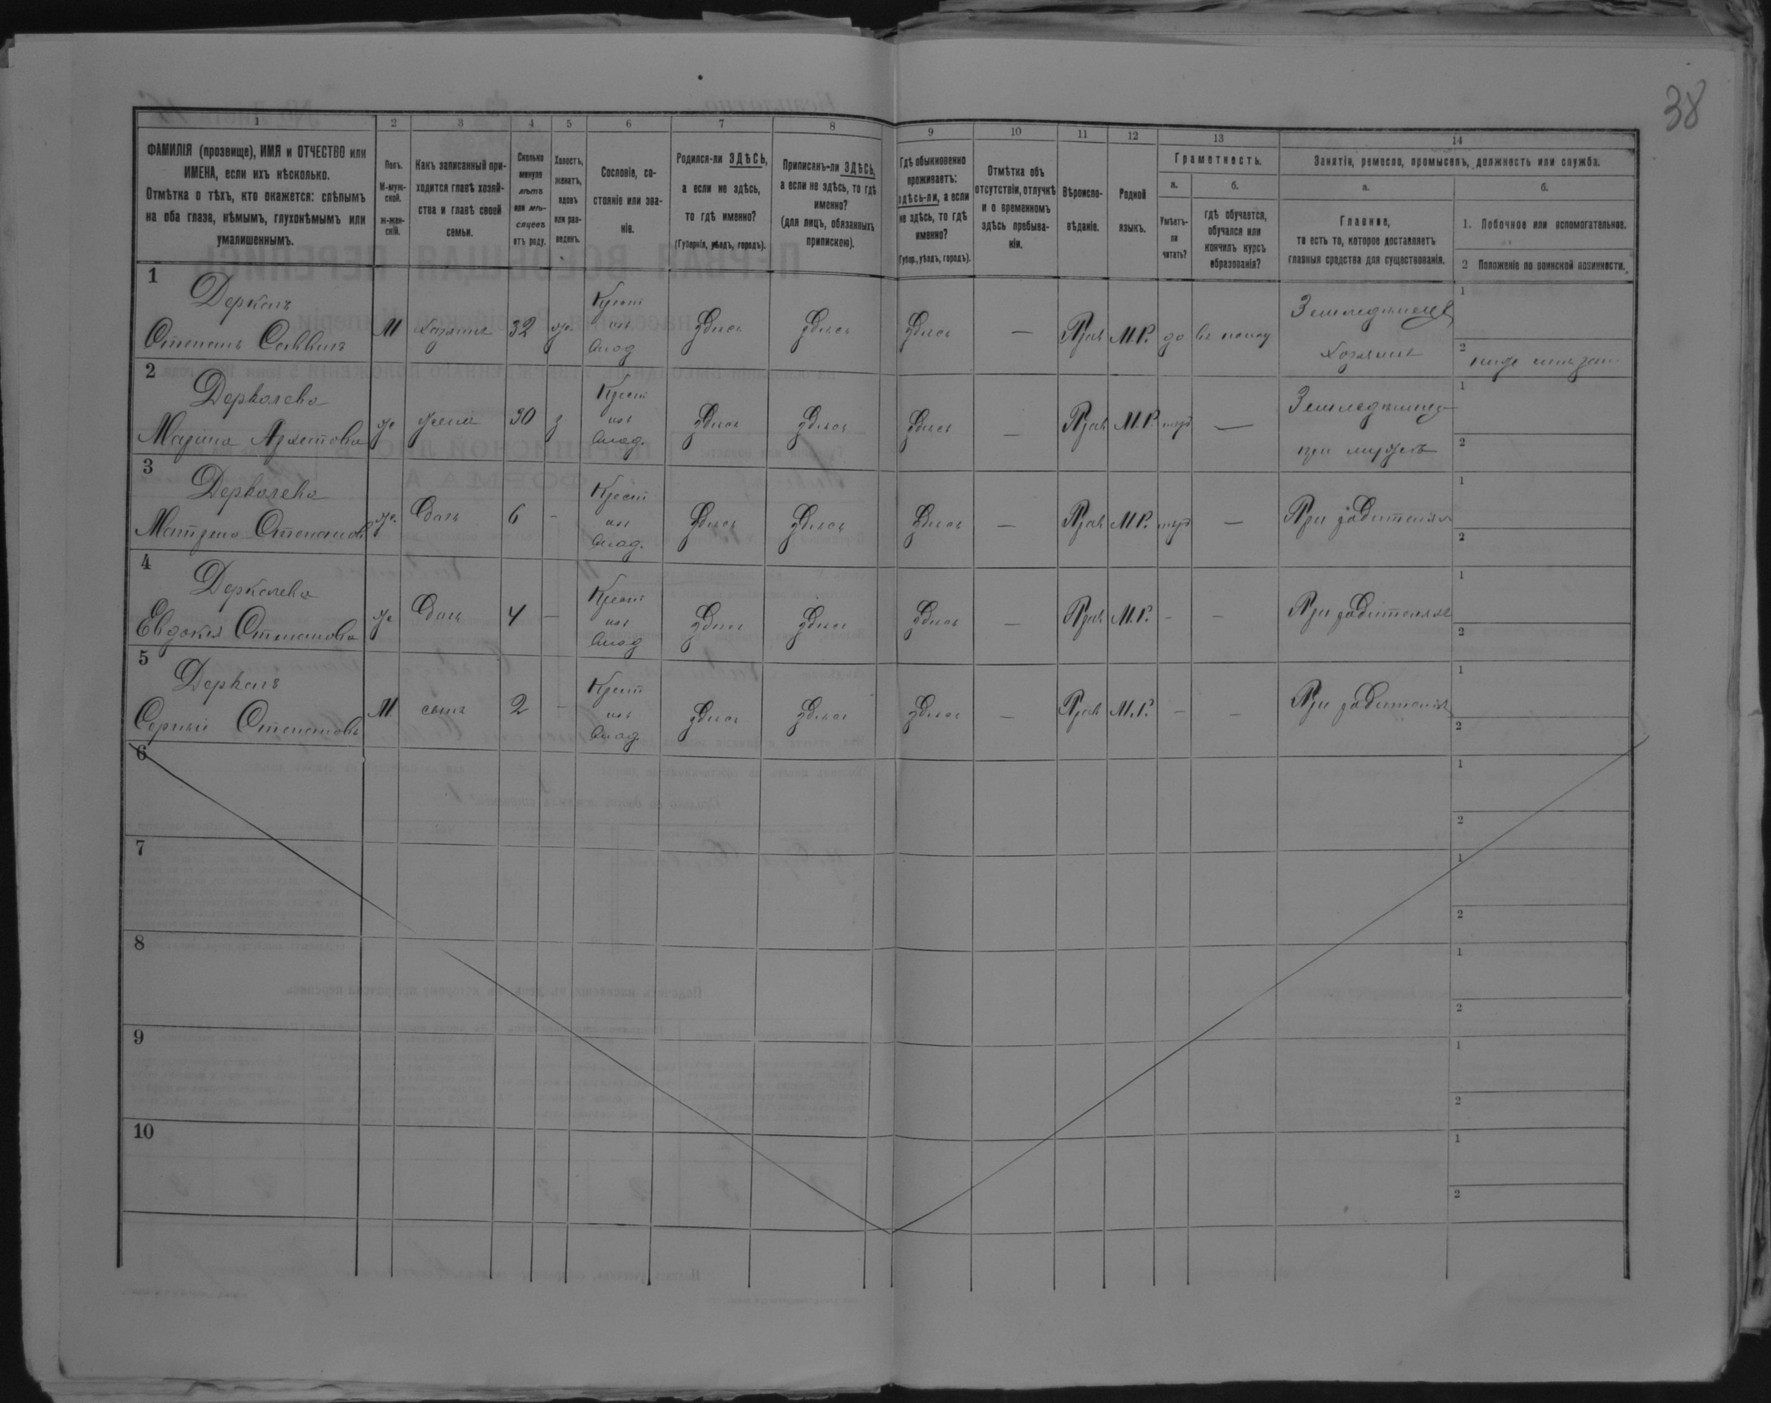 38
1 2 3 4 5 6 7 8 9 10 11 12 13 14
ФАМИЛІЯ (прозвище), ИМЯ и ОТЧЕСТВО или ИМЕНА, если ихъ нѣсколько.
Отмѣтка о тѣхъ, кто окажется: слѣпымъ на оба глаза, нѣмымъ, глухонѣмымъ или умалишеннымъ.
Полъ. М-мужской. Ж-женскій.
Какъ записанный приходится главѣ хозяйства и главѣ своей семьи.
Сколько минуло лѣтъ или мѣсяцевъ отъ роду.
Холостъ, женатъ, вдовъ или разведенъ.
Сословіе, состояніе или званіе.
Родился-ли ЗДѢСЬ, а если не здѣсь, то гдѣ именно?
(Губернія, уѣздъ, городъ).
Приписанъ-ли ЗДѢСЬ, а если не здѣсь, то гдѣ именно?
(для лицъ, обязанныхъ припискою).
Гдѣ обыкновенно проживаетъ: здѣсь-ли, а если не здѣсь, то гдѣ именно?
(Губер., уѣздъ, городъ).
Отмѣтка объ отсутствіи, отлучкѣ и о временномъ здѣсь пребываніи.
Вѣроисповѣданіе.
Родной языкъ.
Грамотность.
а. Умѣетъ-ли читать?
б. гдѣ обучается, обучался или кончилъ курсъ образованія?
Занятіе, ремесло, промыселъ, должность или служба.
а. Главное, то есть то, которое доставляетъ главныя средства для существованія.
б. 1. Побочное или вспомогательное.
2 Положеніе по воинской повинности.
1 Деркачъ
Степанъ Саввинъ М хозяинъ 32 ж. Крест. изъ влад. Здѣсь Здѣсь Здѣсь — Прав М.Р. да Земледѣлецъ хозяинъ
2 Деркачева
Марина ж жена 30 з Крест. изъ влад. Здѣсь Здѣсь Здѣсь — Прав М.Р. нѣтъ — Земледѣлец при мужѣ
3 Деркачева
Матрена Степанова ж. Дочь 6 - Крест. изъ влад. Здѣсь Здѣсь Здѣсь — Прав М.Р. нѣтъ — При родителяхъ
4 Деркачева
Евдокія Степанова ж Дочь 4 — Крест. изъ влад Здѣсь Здѣсь Здѣсь — Прав М.Р. - - При родителяхъ
5 Деркачъ
Сергѣй Степановъ М. сынъ 2 — Крест. изъ влад. Здѣсь Здѣсь Здѣсь — Прав М.Р. - - При родителяхъ
6
7
8
9
10